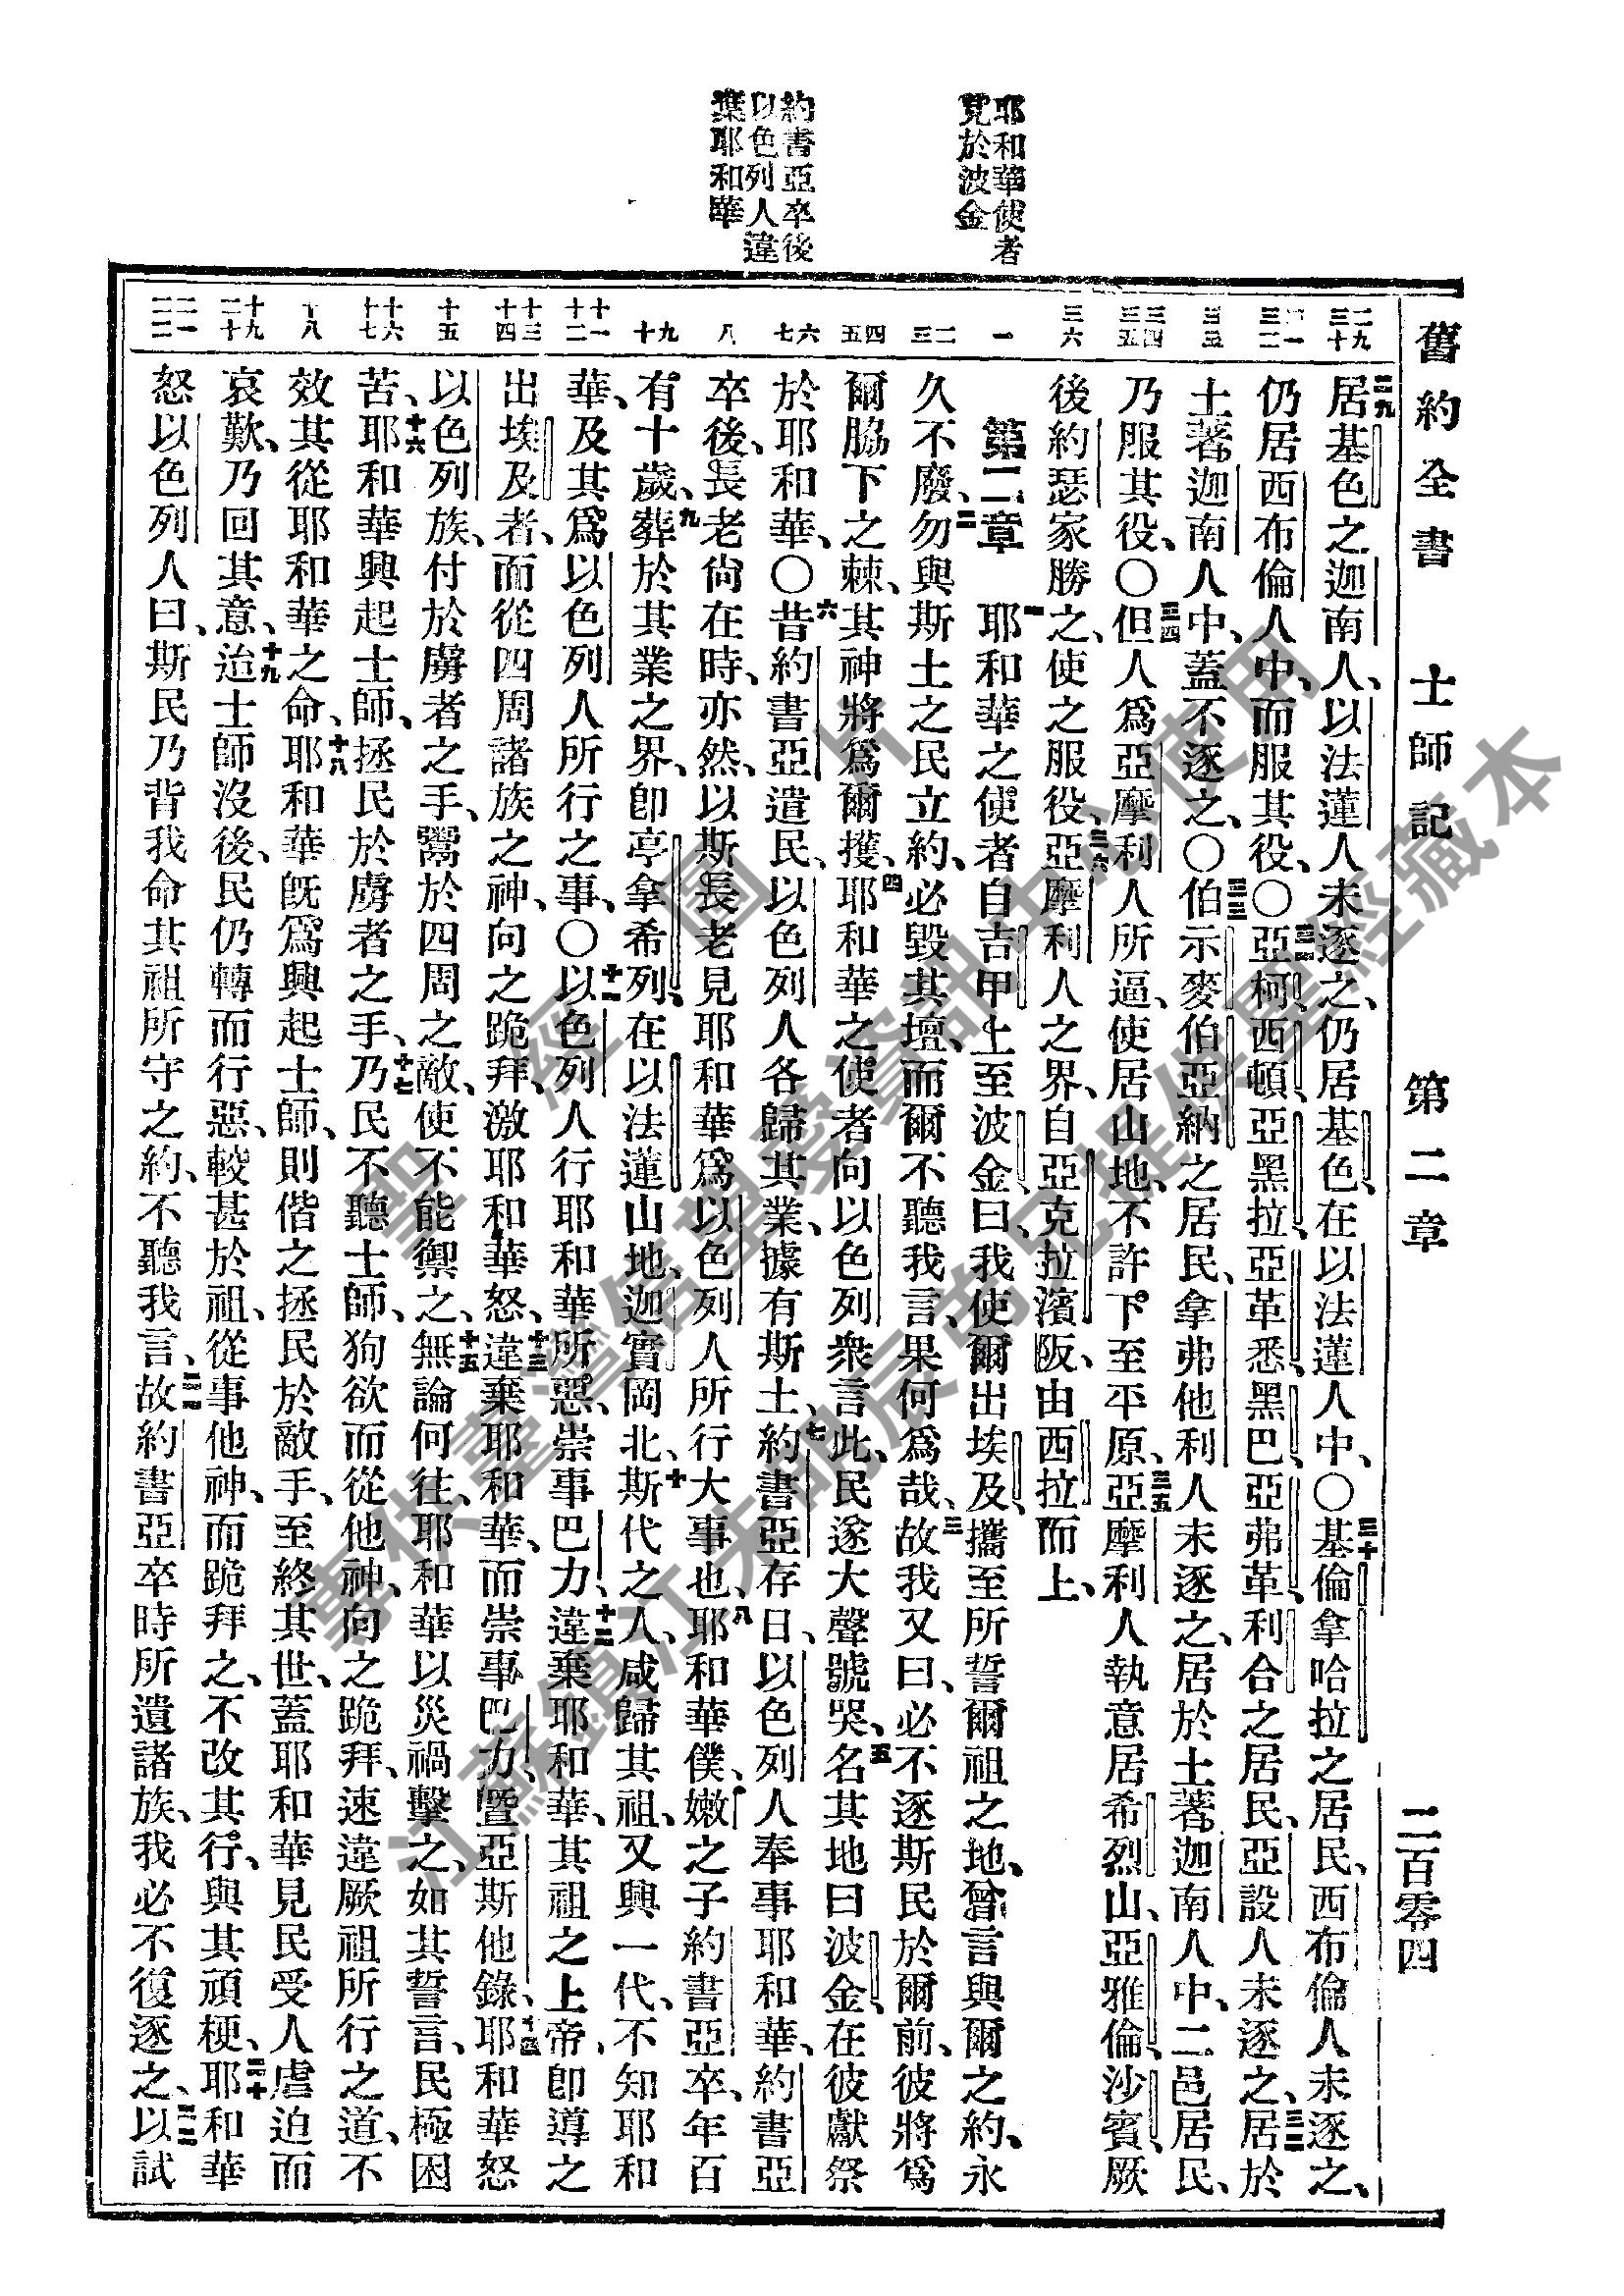 舊約全書 士師記 第二章 二百零四
耶和華使者
見於波金
約書亞卒後
以色列人違
棄耶和華
二九 三十
三一 三二
三三
三四 三五
三六
一
二 三
四 五
六 七
八
九 十
十一 十二
十三 十四
十五
十六 十七
十八
十九 二十
二一 二二
二九居基色之迦南人、以法蓮人未逐之、仍居基色、在以法蓮人中、〇三十基倫拿哈拉之居民、西布倫人未逐之、
仍居西布倫人中、而服其役、〇三一亞柯西頓亞黑拉、亞革悉、黑巴亞弗革、利合之居民、亞設人未逐之、三二居於
土著迦南人中、蓋不逐之、〇三三伯示麥伯亞納之居民、拿弗他利人未逐之、居於土著迦南人中、二邑居民、
乃服其役、〇三四但人爲亞摩利人所逼、使居山地、不許下至平原、三五亞摩利人執意居希烈山、亞雅倫、沙賓、厥
後約瑟家勝之、使之服役、三六亞摩利人之界、自亞克拉濱阪、由西拉而上、
第二章 一耶和華之使者自吉甲上至波金、曰、我使爾出埃及、攜至所誓爾祖之地、曾言與爾之約、永
久不廢、二勿與斯土之民立約、必毀其壇、而爾不聽我言、果何爲哉、三故我又曰、必不逐斯民於爾前、彼將爲
爾脇下之棘、其神將爲爾擭、四耶和華之使者向以色列衆言此、民遂大聲號哭、五名其地曰波金、在彼獻祭
於耶和華、〇六昔約書亞遣民、以色列人各歸其業、據有斯土、七約書亞存日、以色列人奉事耶和華、約書亞
卒後、長老尙在時、亦然、以斯長老見耶和華爲以色列人所行大事也、八耶和華僕、嫩之子約書亞卒、年百
有十歲、九葬於其業之界、卽亭拿希列、在以法蓮山地、迦實岡北、十斯代之人、咸歸其祖、又興一代、不知耶和
華、及其爲以色列人所行之事、〇十一以色列人行耶和華所惡、崇事巴力、十二違棄耶和華、其祖之上帝、卽導之
出埃及者、而從四周諸族之神、向之跪拜、激耶和華怒、十三違棄耶和華、而崇事巴力、曁亞斯他錄、十四耶和華怒
以色列族、付於虜者之手、鬻於四周之敵、使不能禦之、十五無論何往、耶和華以災禍擊之、如其誓言、民極困
苦、十六耶和華興起士師、拯民於虜者之手、十七乃民不聽士師、狥欲而從他神、向之跪拜、速違厥祖所行之道、不
效其從耶和華之命、十八耶和華旣爲興起士師、則偕之拯民於敵手、至終其世、蓋耶和華見民受人虐迫而
哀歎、乃回其意、十九迨士師沒後、民仍轉而行惡、較甚於祖、從事他神、而跪拜之、不改其行、與其頑梗、二十耶和華
怒以色列人曰、斯民乃背我命其祖所守之約、不聽我言、二一故約書亞卒時所遺諸族、我必不復逐之、二二以試
聖經圖片
專供臺灣信望愛資訊中心使用
江蘇鎮江朱明辰弟兄提供聖經藏本